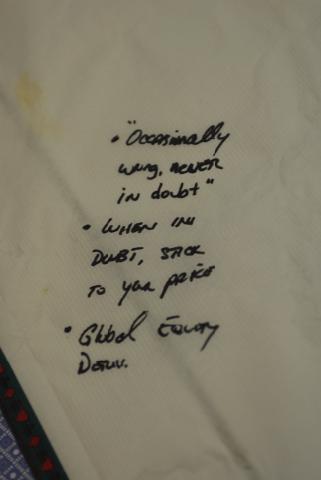 • "Occasionally
wrong, never
in doubt"
• WHEN IN
DOUBT, STICK
TO your PRICE
• Global Equity
Deriv.